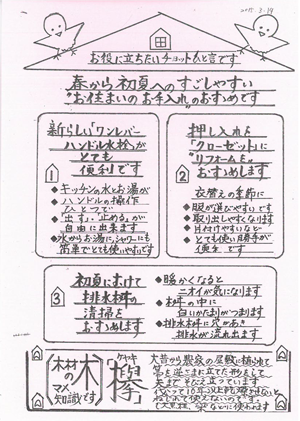 2015.3.19
お役に立ちたいチョットひと言です
春から初夏へのすごしやすい
"お住まいのお手入れ"のおすすめです
新らしい「ワンレバー
ハンドル水栓」が
とても
便利です
1
◆キッチンの水とお湯が
◆ハンドルの操作
ひとつで
◆「出す」「止める」が
自由に出来ます
◆水からお湯に、シャワーにも
簡単でとても使いやすいです
押し入れを
「クローゼット」に
"リフォームを"
おすすめします
2
衣替えの季節に
◆服が選びやすいです
◆取り出しやすくなります
◆片付けやすいなど
◆とても使い勝手が
便利です
初夏にむけて
排水桝の
清掃を
おすすめします
3
◆暖かくなると
ニオイが気になります
◆桝の中に
白いかたまりがつまります
◆排水桝に穴があき
排水が流れ出ます
木材
の
マメ
知識です
木
ケヤキ
欅
大昔から農家の屋敷に植わり
等を逆さまに立てた形をして
天までそびえ立っています
伐っても10年以上乾燥させないと
ねじれて使えないのです